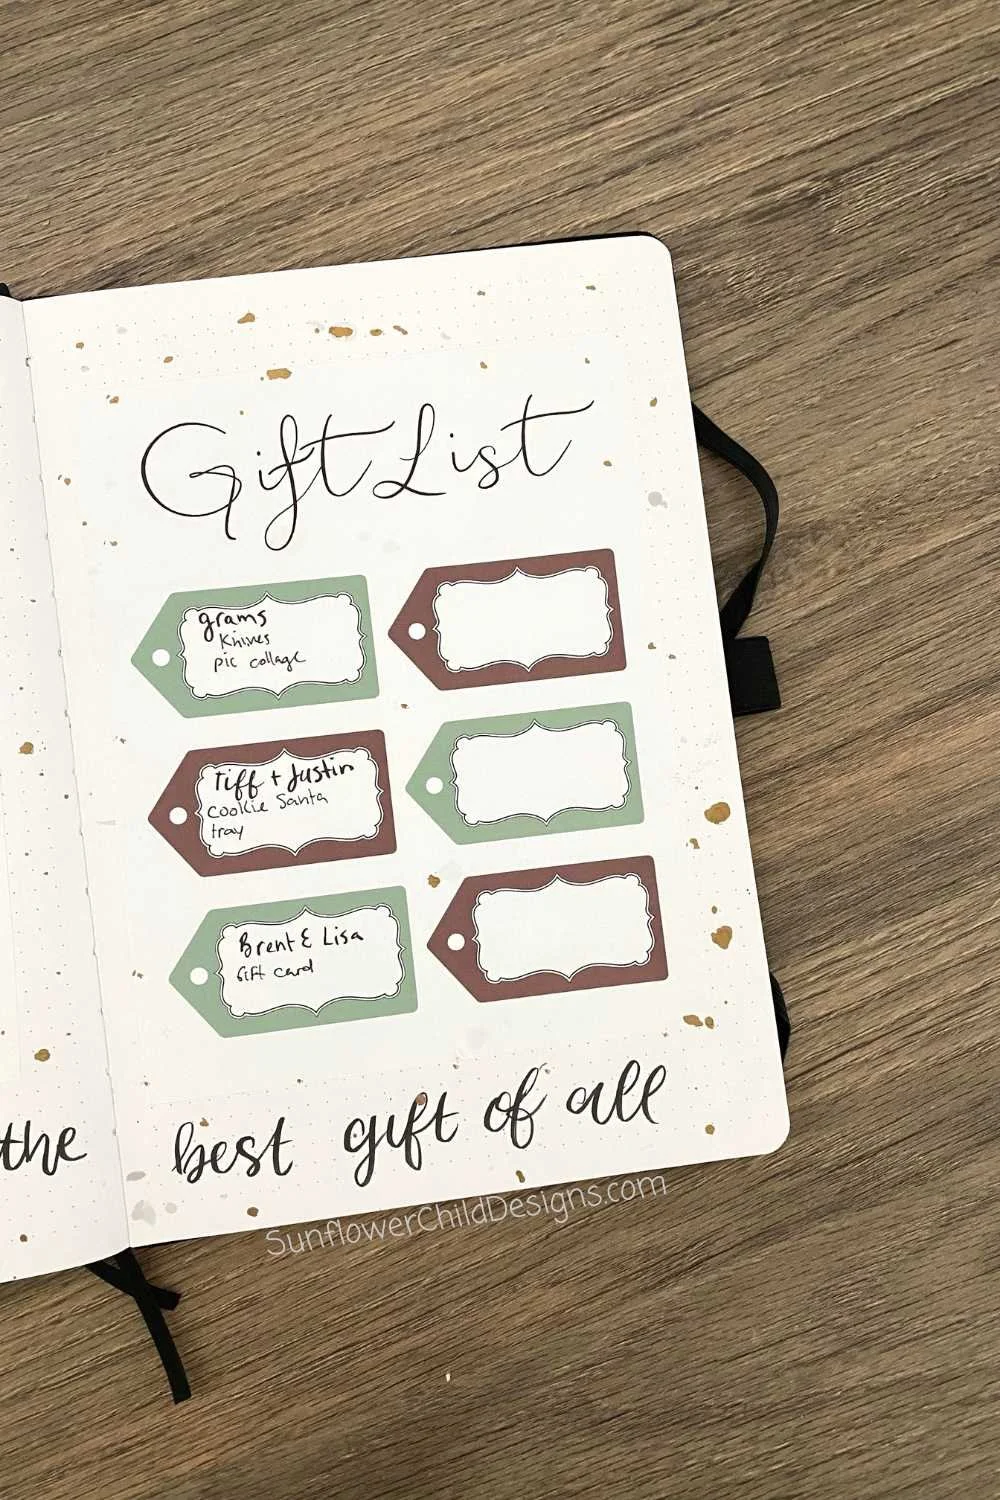 Gift List
grams
Knives
pic collage
Tiff + Justin
cookie Santa
tray
Brent & Lisa
Gift card
the best gift of all
SunflowerChildDesigns.com